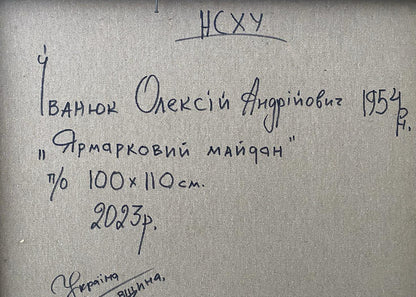 НСХУ
Іванюк Олексій Андрійович 1954 р.н.
„Ярмарковий майдан"
п/о 100х110см.
2023р.
Україна